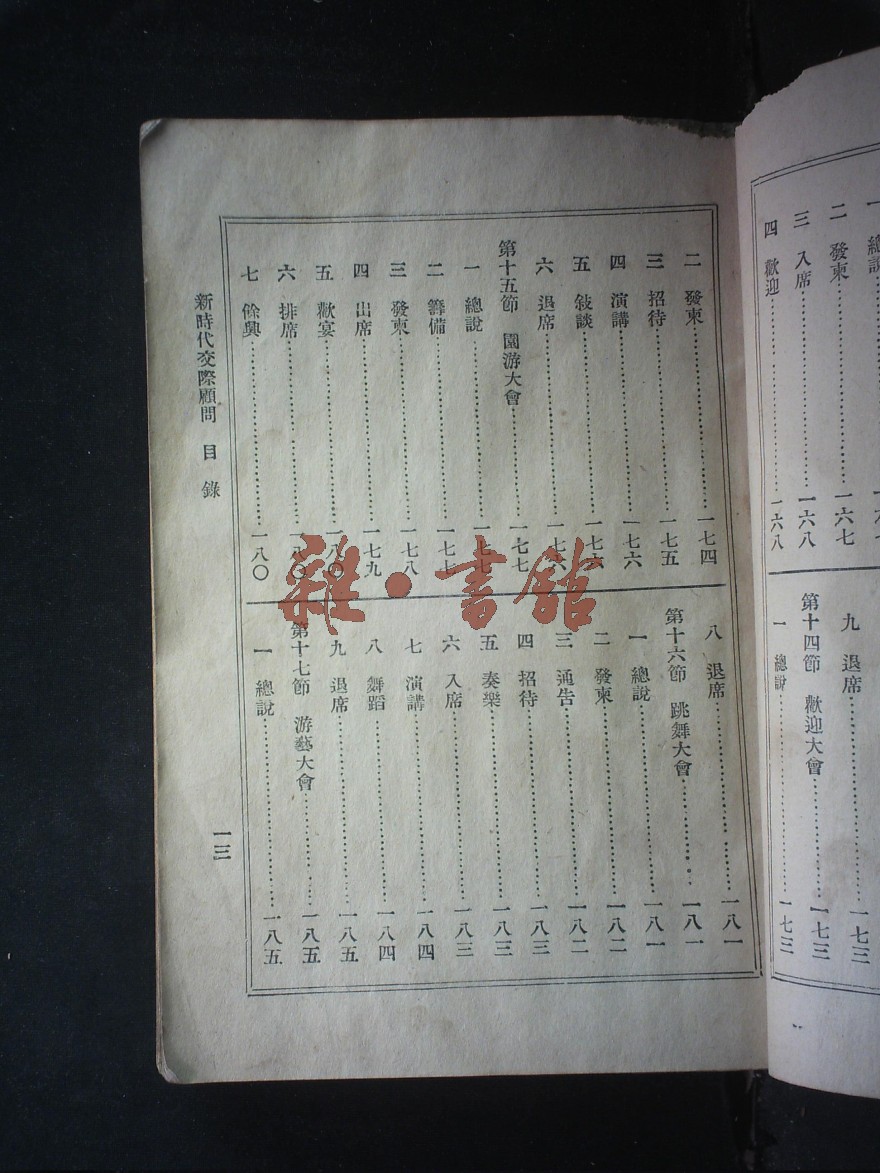 一 總說
二 發柬……一六七
三 入席……一六八
四 歡迎……一六八
九 退席……一七三
第十四節 歡迎大會……一七三
一 總說……一七三
二 發柬……一七四
三 招待……一七五
四 演講……一七六
五 敍談……一七六
六 退席……一七六
第十五節 園游大會……一七七
一 總說……一七七
二 籌備……一七七
三 發柬……一七八
四 出席……一七九
五 歡宴……一八〇
六 排席……一八〇
七 餘興……一八〇
八 退席……一八一
第十六節 跳舞大會……一八一
一 總說……一八一
二 發柬……一八二
三 通告……一八二
四 招待……一八三
五 奏樂……一八三
六 入席……一八三
七 演講……一八四
八 舞蹈……一八四
九 退席……一八五
第十七節 游藝大會……一八五
一 總說……一八五
新時代交際顧問 目錄
一三
雜·書館